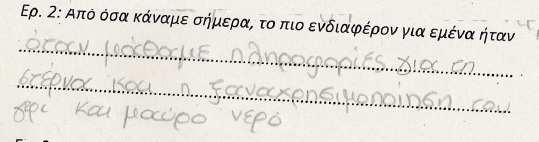 Ερ. 2: Από όσα κάναμε σήμερα, το πιο ενδιαφέρον για εμένα ήταν
όταν μάθαμε πληροφορίες για τη
στέρνα και η ξαναχρησιμοποίηση του
γκρι και μαύρο νερό